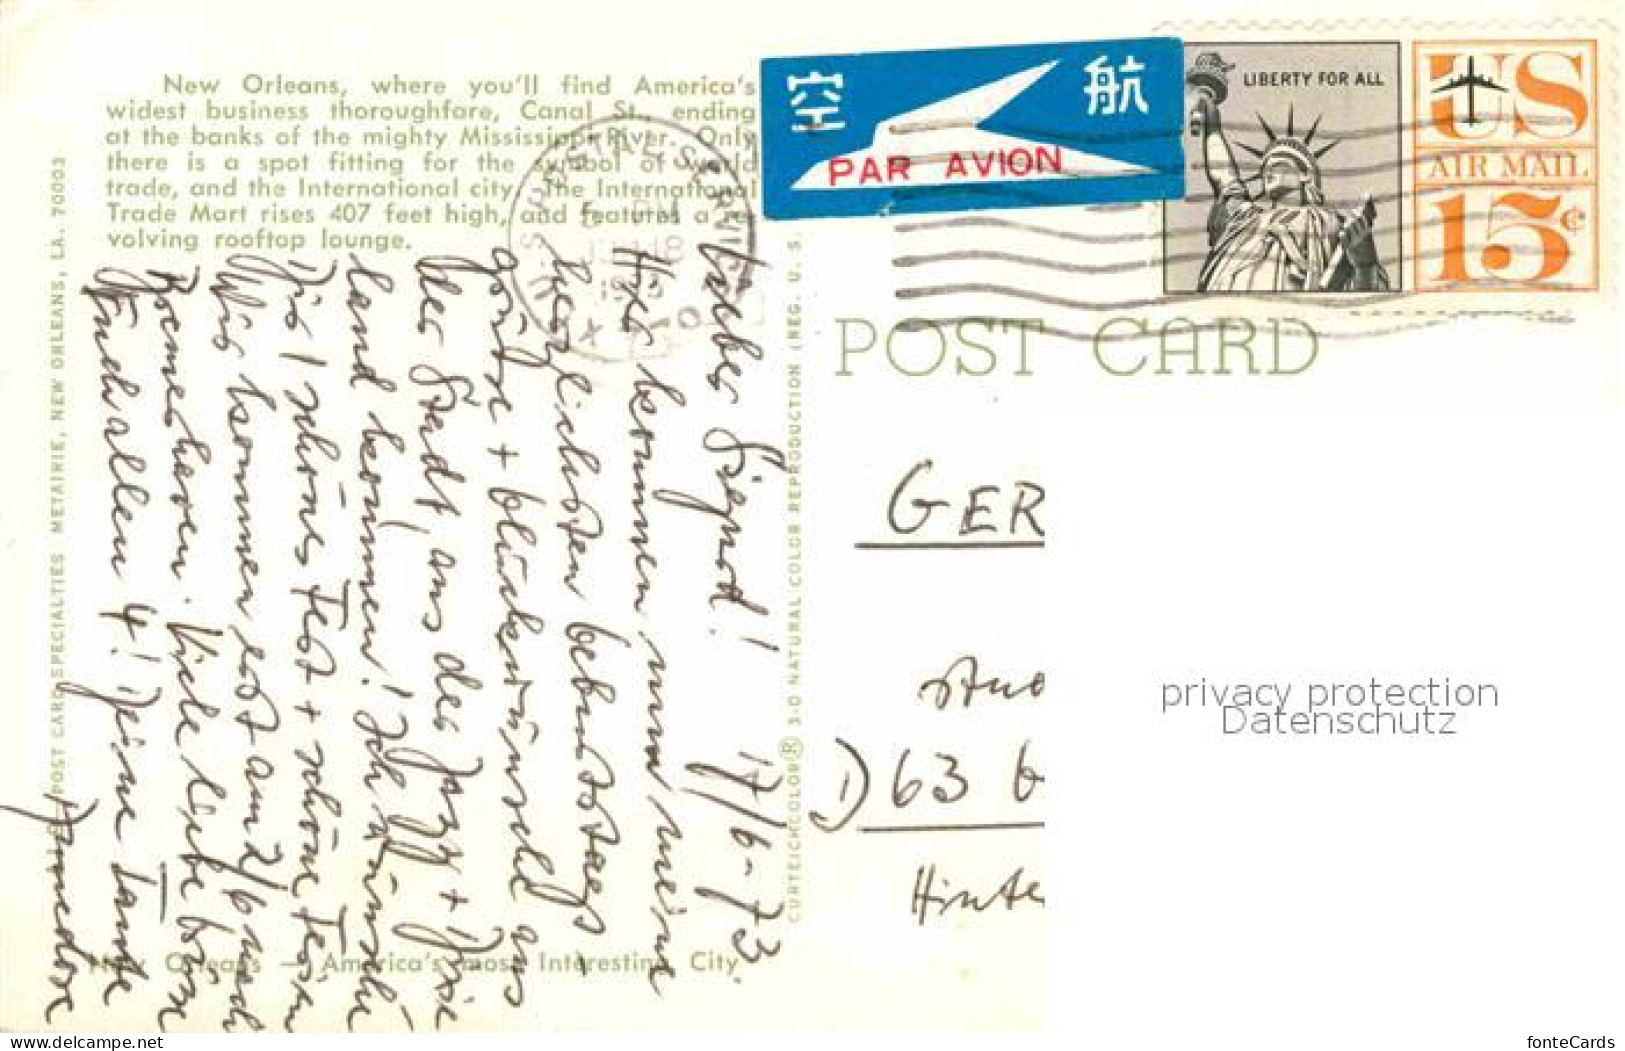 New Orleans, where you'll find America's
widest business thoroughfare, Canal St., ending
at the banks of the mighty Mississippi River. Only
there is a spot fitting for the symbol of world
trade, and the International city. The International
Trade Mart rises 407 feet high, and features a re-
volving rooftop lounge.
空 航
PAR AVION
LIBERTY FOR ALL
US
AIR MAIL
15¢
U.S. POSTAL SERVICE
POST CARD
POST CARD SPECIALTIES METAIRIE, NEW ORLEANS, LA. 70003
CURTEICHCOLOR® 3-D NATURAL COLOR REPRODUCTION (REG. U. S.
17/6-73
Lieber Siegurd!
Hier kommen nun meine
herzlichsten Geburtstags-
grüße + glückwünsche aus
der Stadt, aus der Jazz + Dixie
land kommen! Ich wünsche
Dir 1 schönes Fest + schöne Ferien
Wir kommen erst am 2/6 nach
Bremerhaven. Viele liebe Grüße
Euch allen 4! Deine Tante
Annedore
New Orleans — America's most Interesting City.
GER
1) 63 G
Hinte
privacy protection
Datenschutz
www.delcampe.net
fonteCards